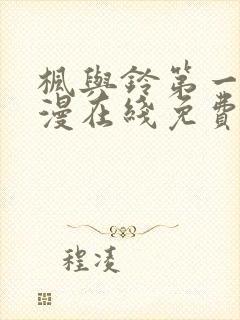 楓與鈴第一
漫在綫免費
程凌